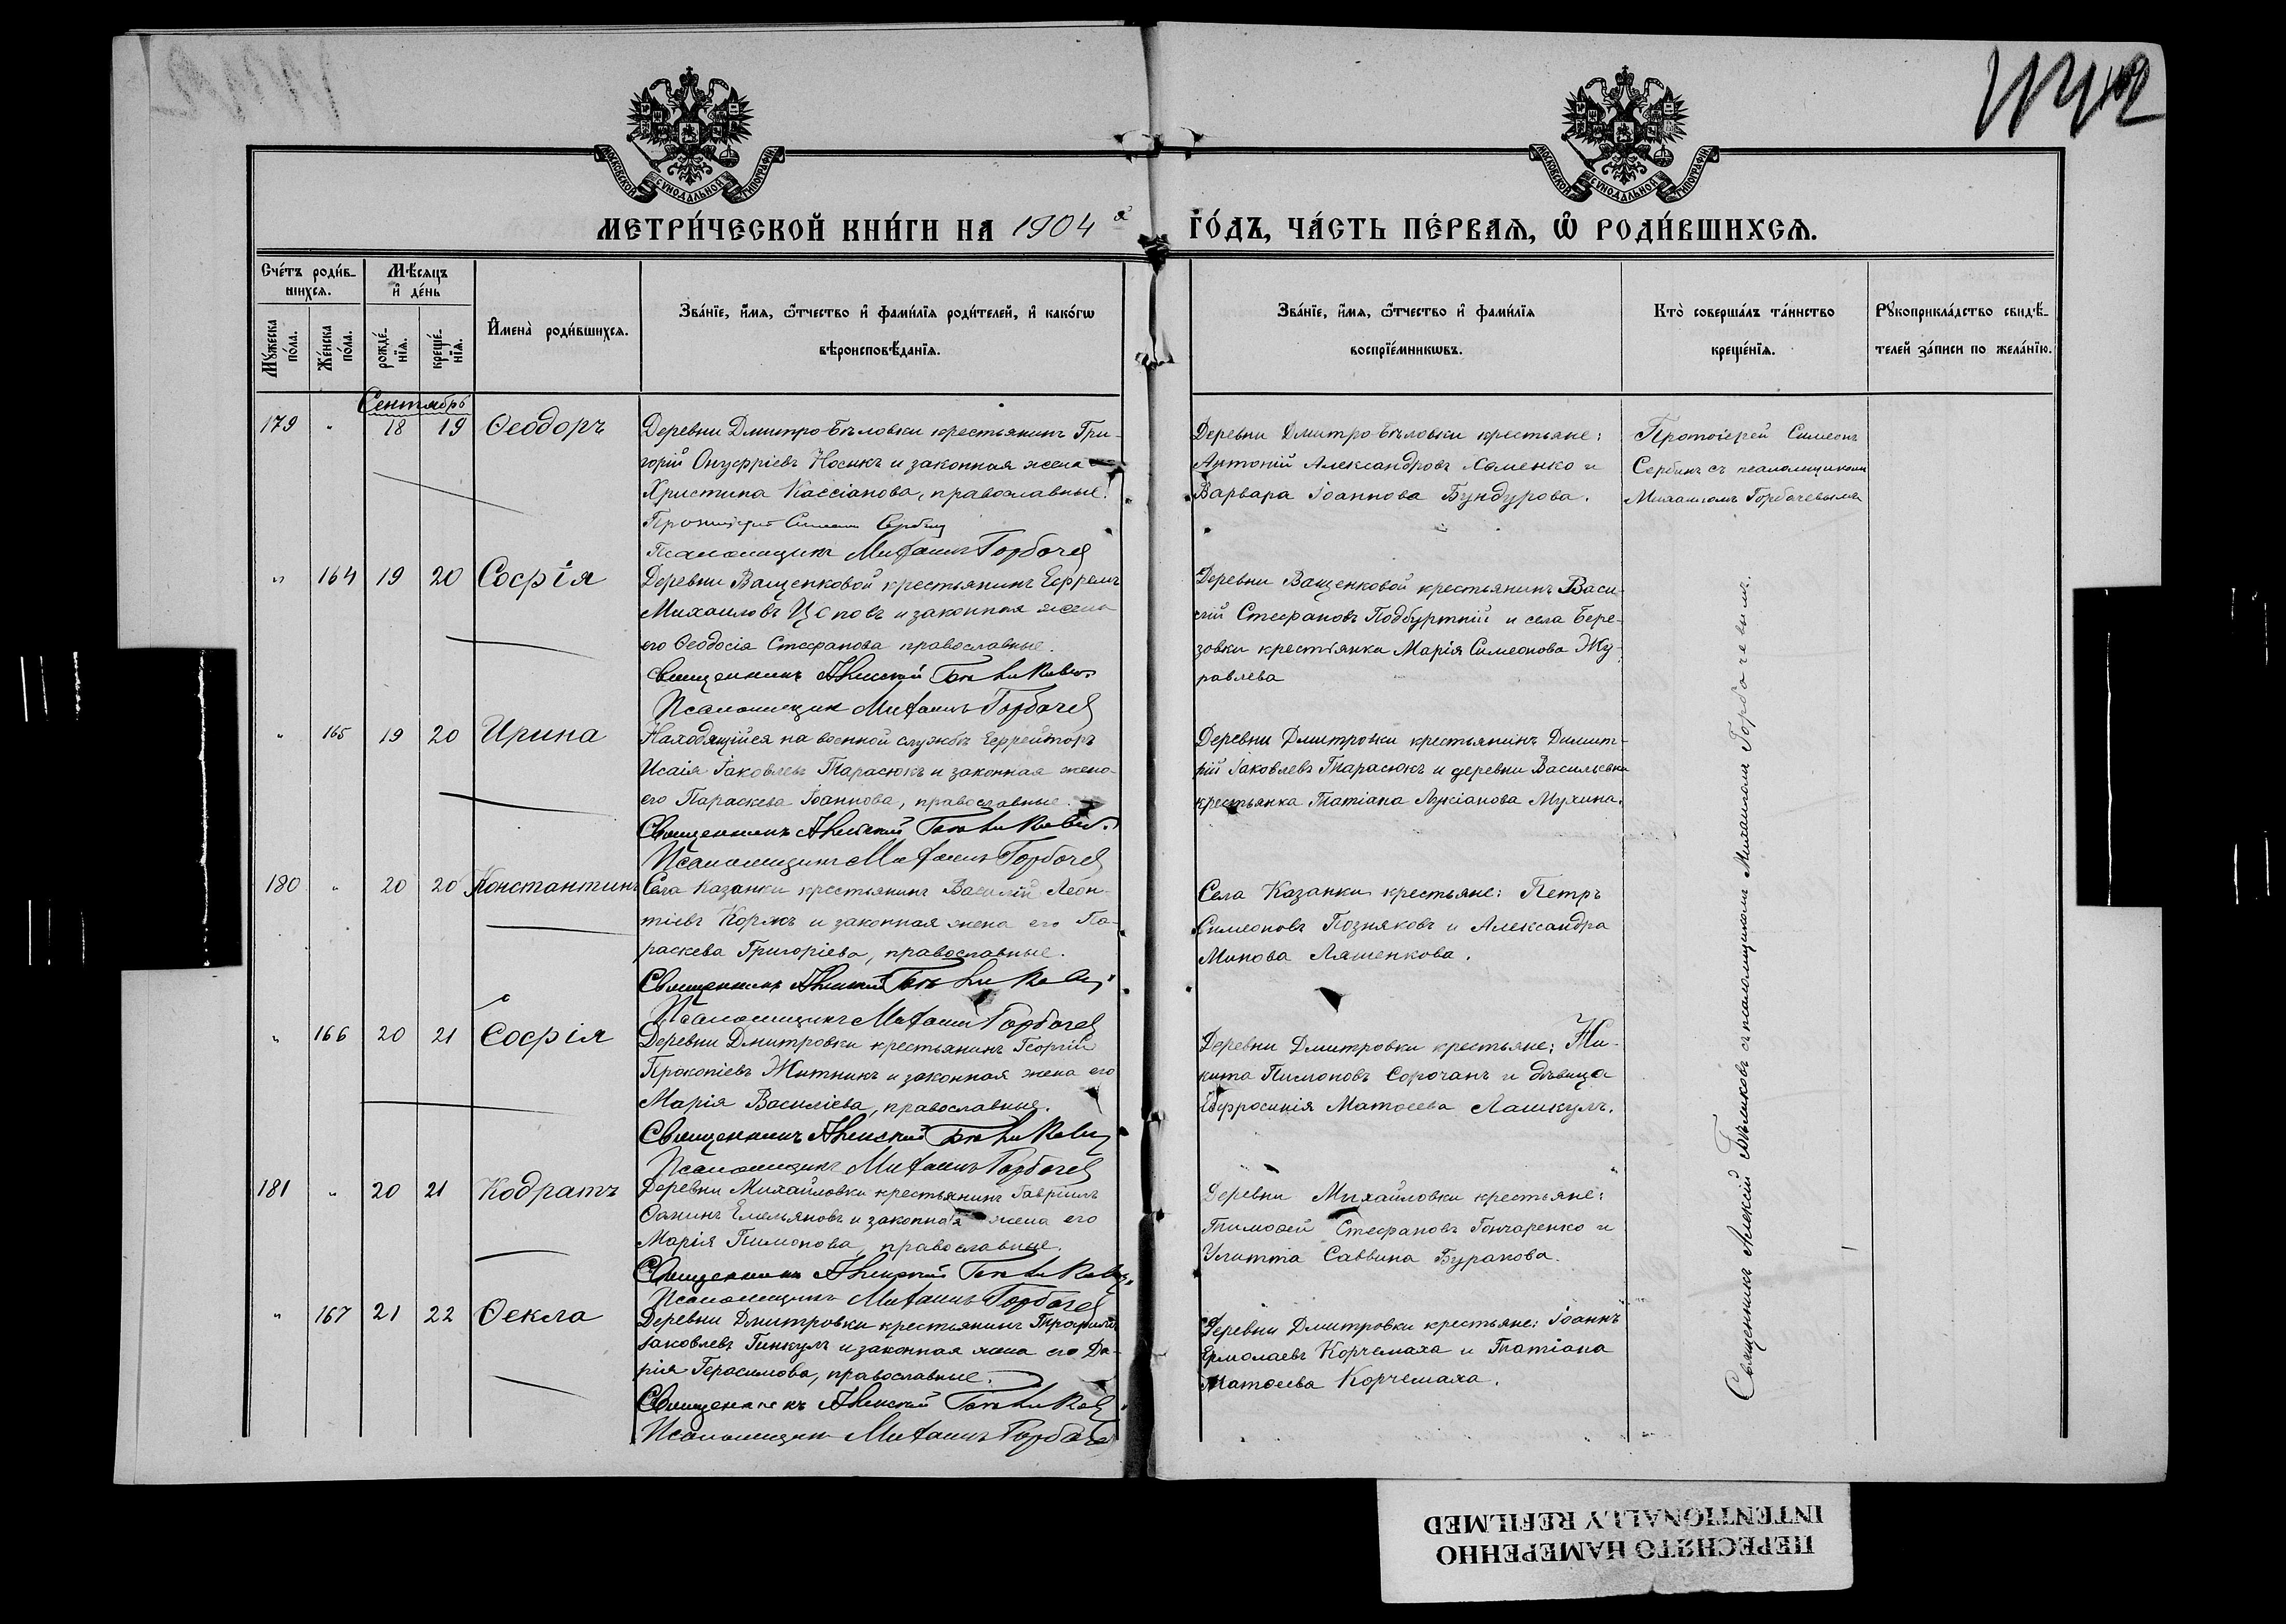 МЕТРИ́ЧЕСКОЙ КНИ́ГИ НА 1904 й ГО́ДЪ, ЧА́СТЬ ПЕ́РВАѦ, Ѡ РОДИ́ВШИХСѦ.
МОСКОВСКОЙ СѴНОДАЛЬНОЙ ТИПОГРАФІИ
МОСКОВСКОЙ СѴНОДАЛЬНОЙ ТИПОГРАФІИ
Сче́тъ роди́в-
шихсѧ.
Мꙋ́жеска по́ла.
Же́нска по́ла.
Мѣ́сѧцъ
и҆ де́нь
рожде́-нїѧ.
креще́-нїѧ.
И҆мена̀ роди́вшихсѧ.
Зва́нїе, и҆́мѧ, ѻ҆́тчество и҆ фами́лїѧ роди́телей, и҆ како́гѡ
вѣроисповѣ́данїѧ.
Зва́нїе, и҆́мѧ, ѻ҆́тчество и҆ фами́лїѧ
воспрїе́мникѡвъ.
Кто̀ соверша́лъ та́инство
креще́нїѧ.
Рꙋкоприкла́дство свидѣ́-
телей за́писи по жела́нїю.
Сентябрь
179 " 18 19 Ѳеодоръ
Деревни Дмитро-Бѣловки крестьянинъ Гри-
горій Онуфріевъ Носикъ и законная жена
Христина Кассіанова, православные.
Протоіерей Симеонъ Сербинъ
Псаломщикъ Михаилъ Горбачев
Деревни Дмитро-Бѣловки крестьяне:
Антоній Александровъ Хоменко и
Варвара Іоаннова Бундурова.
Протоіерей Симеонъ
Сербинъ съ псаломщикомъ
Михаиломъ Горбачевымъ
" 164 19 20 Софія
Деревни Ващенковой крестьянинъ Ефремъ
Михаиловъ Цоповъ и законная жена
его Ѳеодосія Стефанова православные.
Священникъ Алексій Бѣликовъ
Псаломщик Михаилъ Горбачев
Деревни Ващенковой крестьянинъ Васи-
лій Стефановъ Подбуртній и села Бере-
зовки крестьянка Марія Симеонова Жу-
равлева
" 165 19 20 Ирина
Находящійся на военной службѣ Ефрейторъ
Исаія Іаковлевъ Тарасюкъ и законная жена
его Параскева Іоаннова, православные.
Священникъ Алексій Бѣликовъ
Псаломщикъ Михаилъ Горбачев
Деревни Дмитровки крестьянинъ Димит-
рій Іаковлевъ Тарасюкъ и деревни Васильевки
крестьянка Татіана Лукіанова Мухина.
180 " 20 20 Константинъ
Села Казанки крестьянинъ Василій Леон-
тіевъ Коржъ и законная жена его Па-
раскева Григоріева, православные.
Священникъ Алексій Бѣликовъ
Псаломщикъ Михаилъ Горбачев
Села Казанки крестьяне: Петръ
Симеоновъ Позняковъ и Александра
Минова Ляшенкова.
" 166 20 21 Софія
Деревни Дмитровки крестьянинъ Георгій
Прокопіевъ Житникъ и законная жена его
Марія Василіева, православные.
Священникъ Алексій Бѣликовъ
Псаломщикъ Михаилъ Горбачев
Деревни Дмитровки крестьяне: Ни-
кита Пимоновъ Сорочанъ и дѣвица
Евфросинія Матѳеева Лашкулъ.
181 " 20 21 Кодратъ
Деревни Михайловки крестьянинъ Гавріилъ
Ѳоминъ Емельяновъ и законная жена его
Марія Пимонова, православные.
Священникъ Алексій Бѣликовъ
Псаломщикъ Михаилъ Горбачев
Деревни Михайловки крестьяне:
Тимоѳей Стефановъ Гончаренко и
Улитта Саввина Буракова.
" 167 21 22 Ѳекла
Деревни Дмитровки крестьянинъ Трофимъ
Іаковлевъ Гинкулъ и законная жена его Да-
рія Герасимова, православные.
Священникъ Алексій Бѣликовъ
Псаломщикъ Михаилъ Горбачев
Деревни Дмитровки крестьяне: Іоаннъ
Ермолаевъ Корчемаха и Татіана
Матѳеева Корчемаха.
Священникъ Алексій Бѣликовъ съ псаломщикомъ Михаиломъ Горбачевымъ.
ПЕРЕСНЯТО НАМЕРЕННО
INTENTIONALLY REFILMED